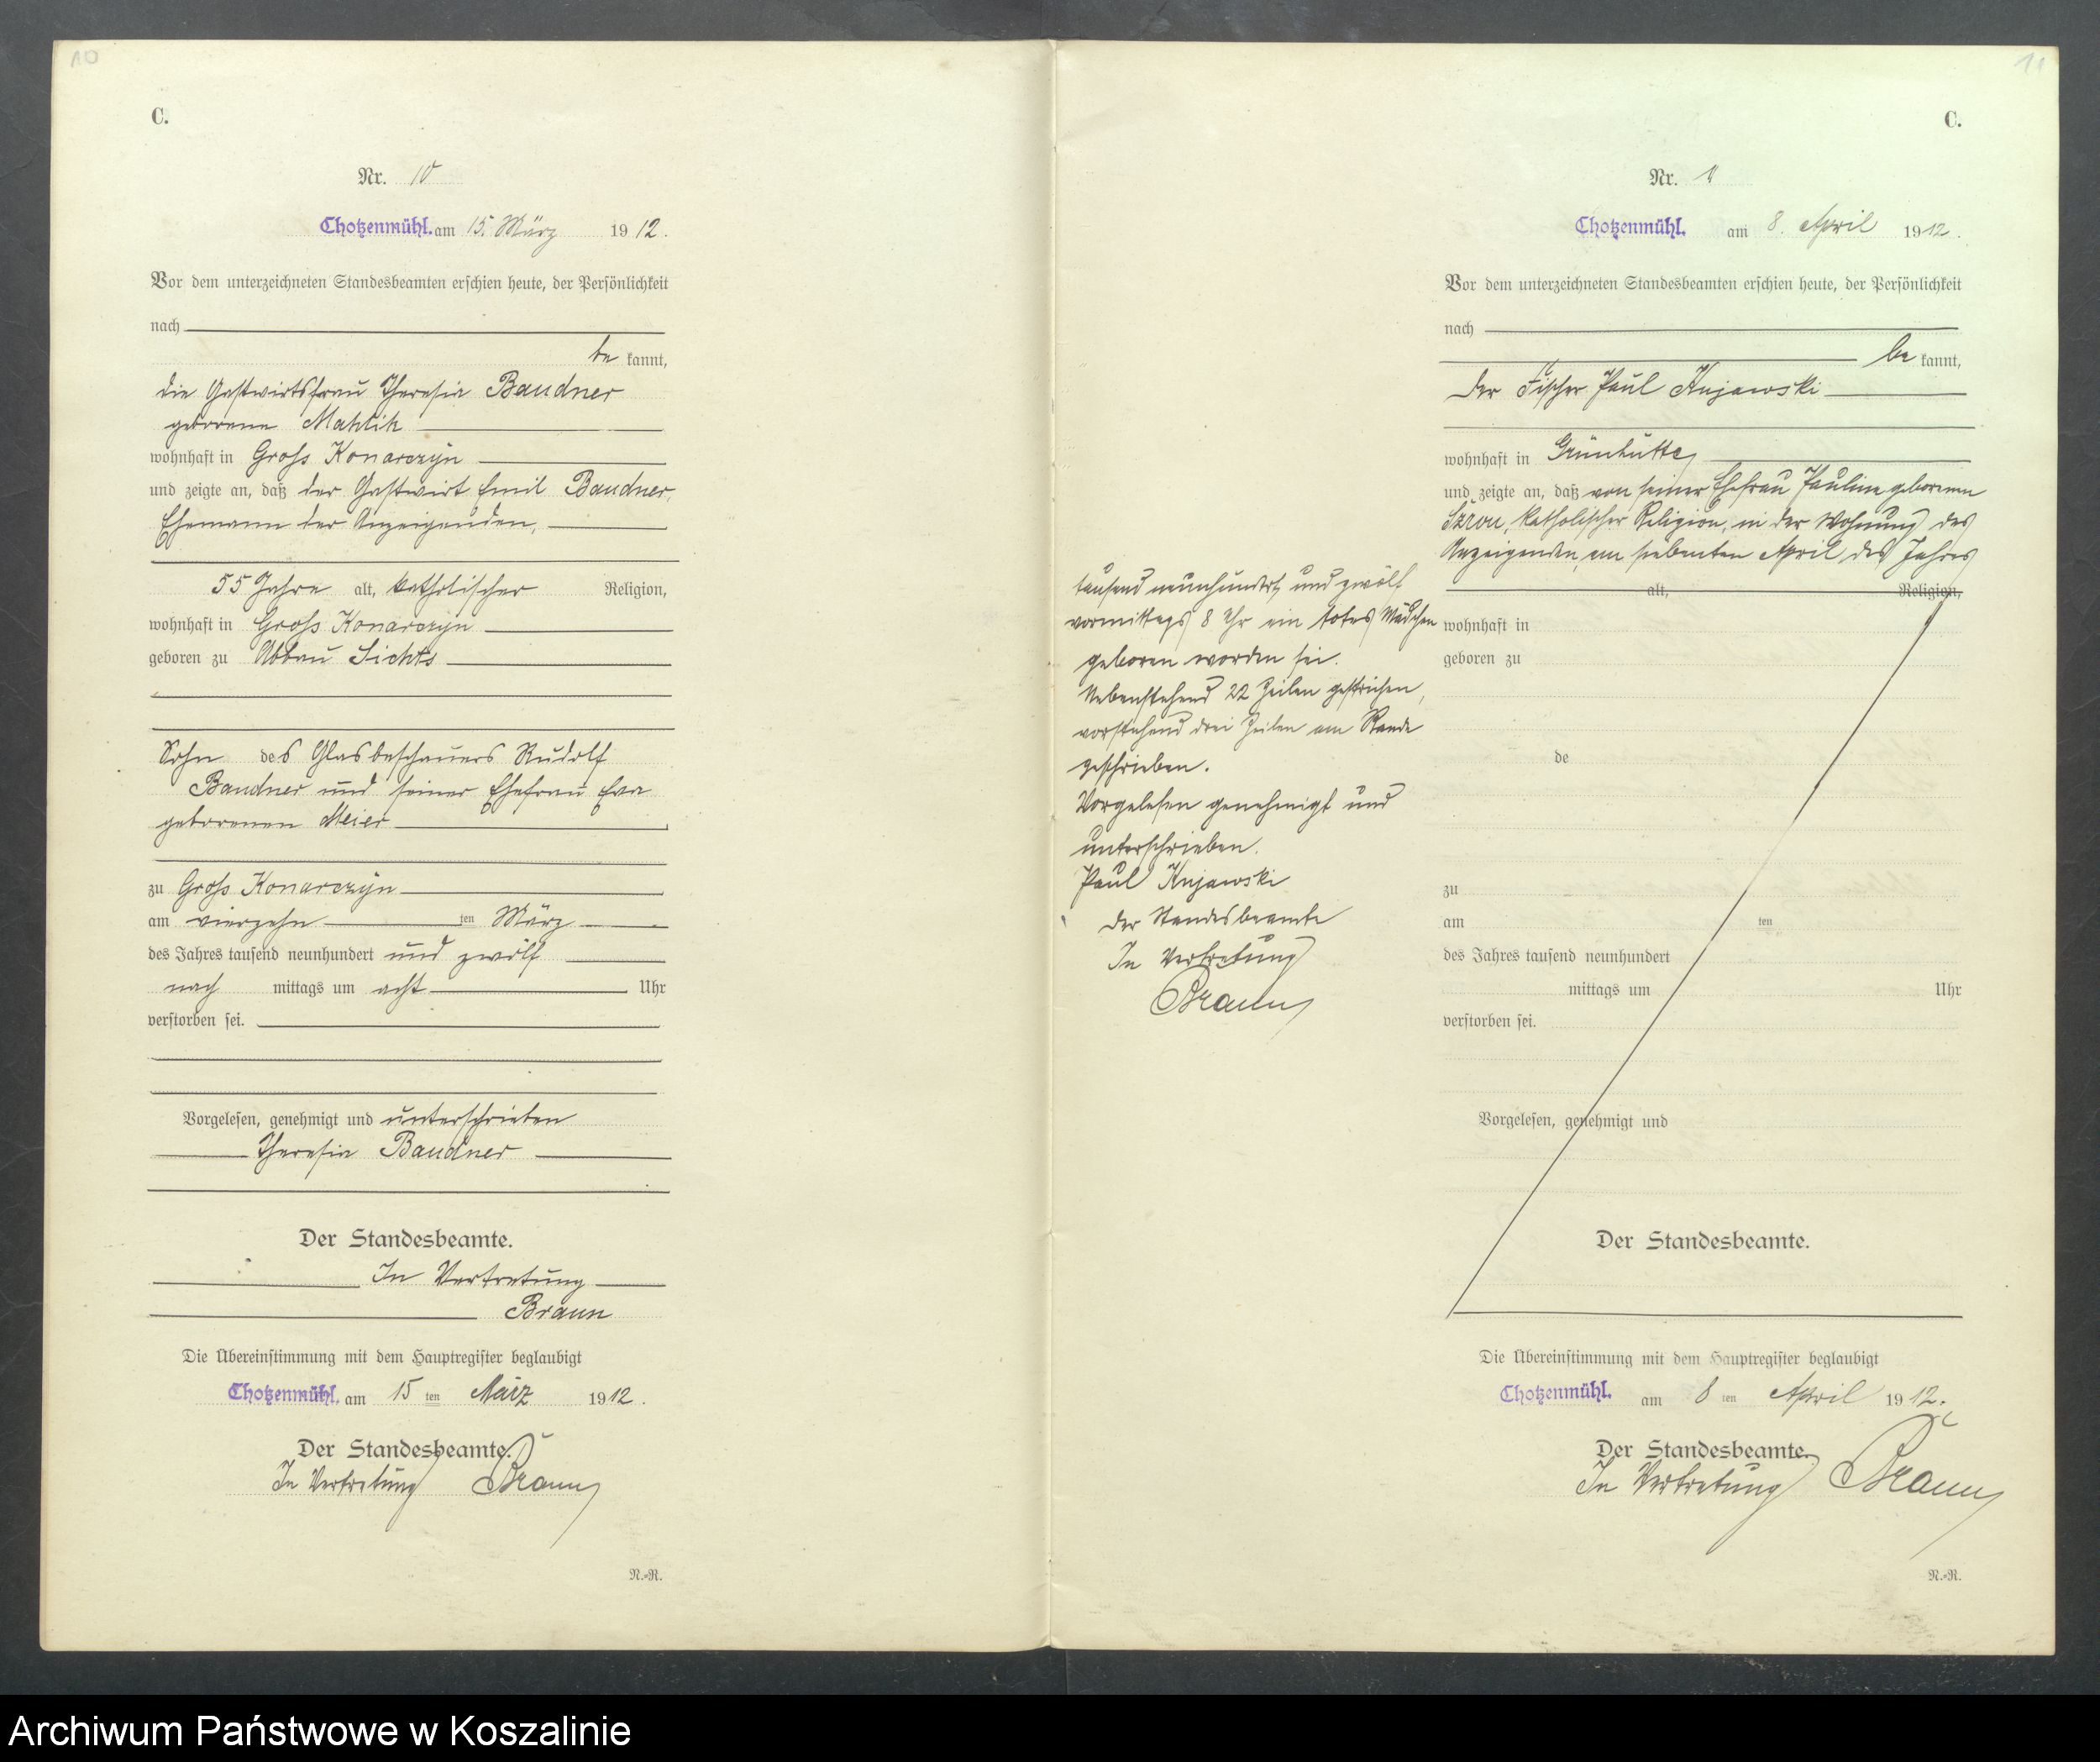 10
C.
Nr. 10
Chotzenmühl. am 15. März 1912.
Vor dem unterzeichneten Standesbeamten erschien heute, der Persönlichkeit
nach
be kannt,
die Gastwirtsfrau Theresia Baudner
geborene Mahlik
wohnhaft in Gross Konarczyn
und zeigte an, daß der Gastwirt Emil Baudner,
Ehemann der Anzeigenden,
55 Jahre alt, katholischer Religion,
wohnhaft in Gross Konarczyn
geboren zu Abbau Lichts
Sohn des Glasbeschauers Rudolf
Baudner und seiner Ehefrau Eva
geborenen Meier
zu Gross Konarczyn
am vierzehn ten März
des Jahres tausend neunhundert und zwölf
nach mittags um acht Uhr
verstorben sei.
Vorgelesen, genehmigt und unterschrieben
Theresia Baudner
Der Standesbeamte.
In Vertretung
Braun
Die Übereinstimmung mit dem Hauptregister beglaubigt
Chotzenmühl. am 15 ten März 1912.
Der Standesbeamte.
In Vertretung Braun
N.=R.
11
C.
Nr.
Chotzenmühl. am 8. April 1912.
Vor dem unterzeichneten Standesbeamten erschien heute, der Persönlichkeit
nach
be kannt,
der Fischer Paul Kujawski
wohnhaft in Grünhütte
und zeigte an, daß von seiner Ehefrau Pauline geborenen
katholischer Religion, in der Wohnung des
Anzeigenden, am siebenten April des Jahres
tausend neunhundert und zwölf
vormittags 8 Uhr ein totes Mädchen
geboren worden sei.
Nebenstehend 22 Zeilen gestrichen,
vorstehend drei Zeilen am Rande
geschrieben.
Vorgelesen genehmigt und
unterschrieben.
Paul Kujawski
Der Standesbeamte
In Vertretung
Braun
alt, Religion,
wohnhaft in
geboren zu
de
zu
am ten
des Jahres tausend neunhundert
mittags um Uhr
verstorben sei.
Vorgelesen, genehmigt und
Der Standesbeamte.
Die Übereinstimmung mit dem Hauptregister beglaubigt
Chotzenmühl. am 8 ten April 1912.
Der Standesbeamte.
In Vertretung Braun
N.=R.
Archiwum Państwowe w Koszalinie